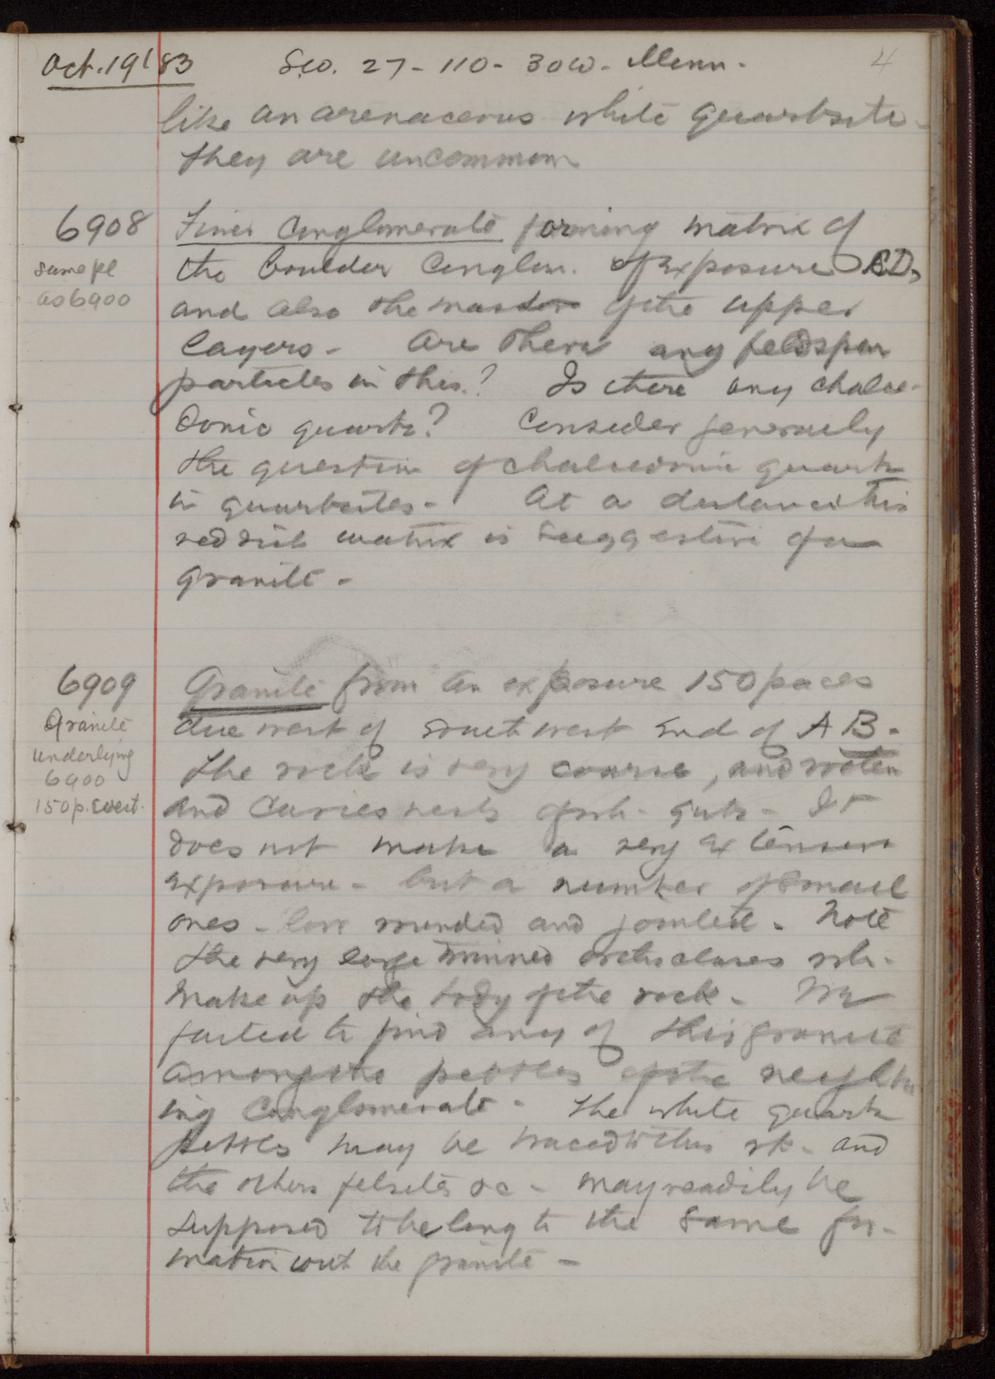 Oct. 19 '83 Sec. 27-110-30W. Minn. 4
like an arenaceous white quartzite.
They are uncommon
6908 Finer Conglomerate forming matrix of
same pl the boulder Conglom. of exposure CD,
as 6900 and also the mass of the upper
layers - Are there any feldspar
particles in this? Is there any chalce-
donic quartz? Consider generally
the question of chalcedonic quartz
in quartzites - At a distance this
reddish matrix is suggestive of a
granite -
6909 Granite from an exposure 150 paces
Granite due west of southwest end of AB.
underlying The rock is very coarse, and rotten
6900 and carries nests of wh. qutz - It
150 p. west. does not make a very extensive
exposure - but a number of small
ones - low rounded and jointed. Note
the very large twinned orthoclases wh.
make up the body of the rock - We
failed to find any of this granite
among the pebbles of the neighbor
ing Conglomerate - The white quartz
pebbles may be traced to this rk - and
the others felsites &c - may readily be
supposed to belong to the same for-
mation with the granite -